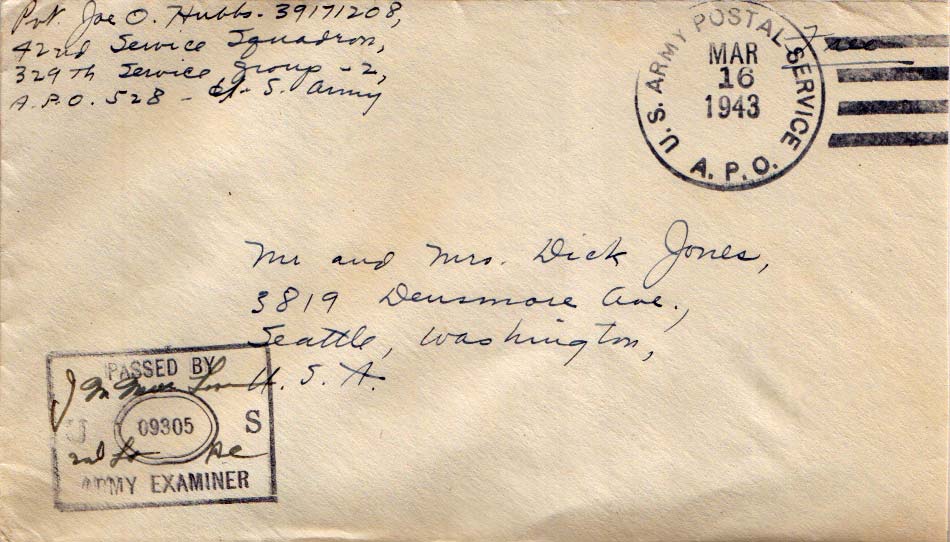 Pvt. Joe O. Hubbs - 39171208,
42nd Service Squadron,
329th Service Group - 2,
A.P.O. 528 - U. S. Army
Free
U.S. ARMY POSTAL SERVICE
MAR
16
1943
A.P.O.
Mr and Mrs. Dick Jones,
3819 Densmore Ave.,
Seattle, Washington,
U. S. A.
PASSED BY
U 09305 S
2nd Lt AC
ARMY EXAMINER